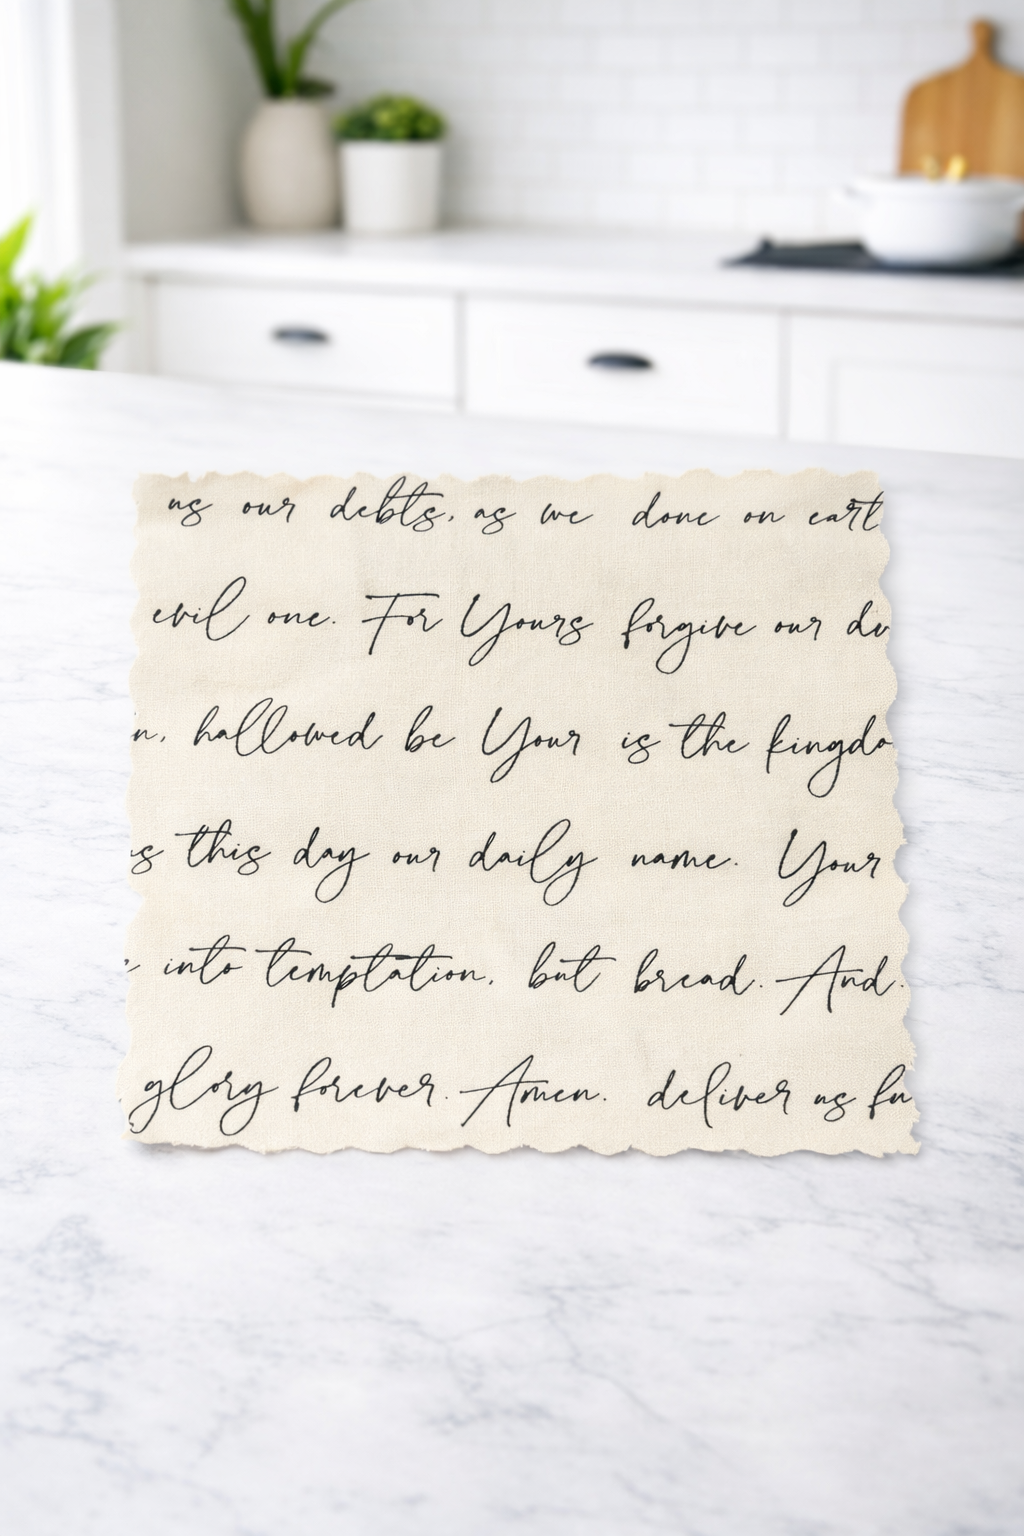 us our debts, as we done on eart
evil one. For Yours forgive our
n, hallowed be Your is the kingdo
this day our daily name. Your
into temptation, but bread. And
glory forever. Amen. deliver us